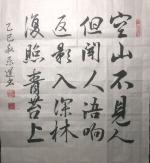 空山不見人
但聞人語响
返影入深林
復照青苔上
乙巳秋